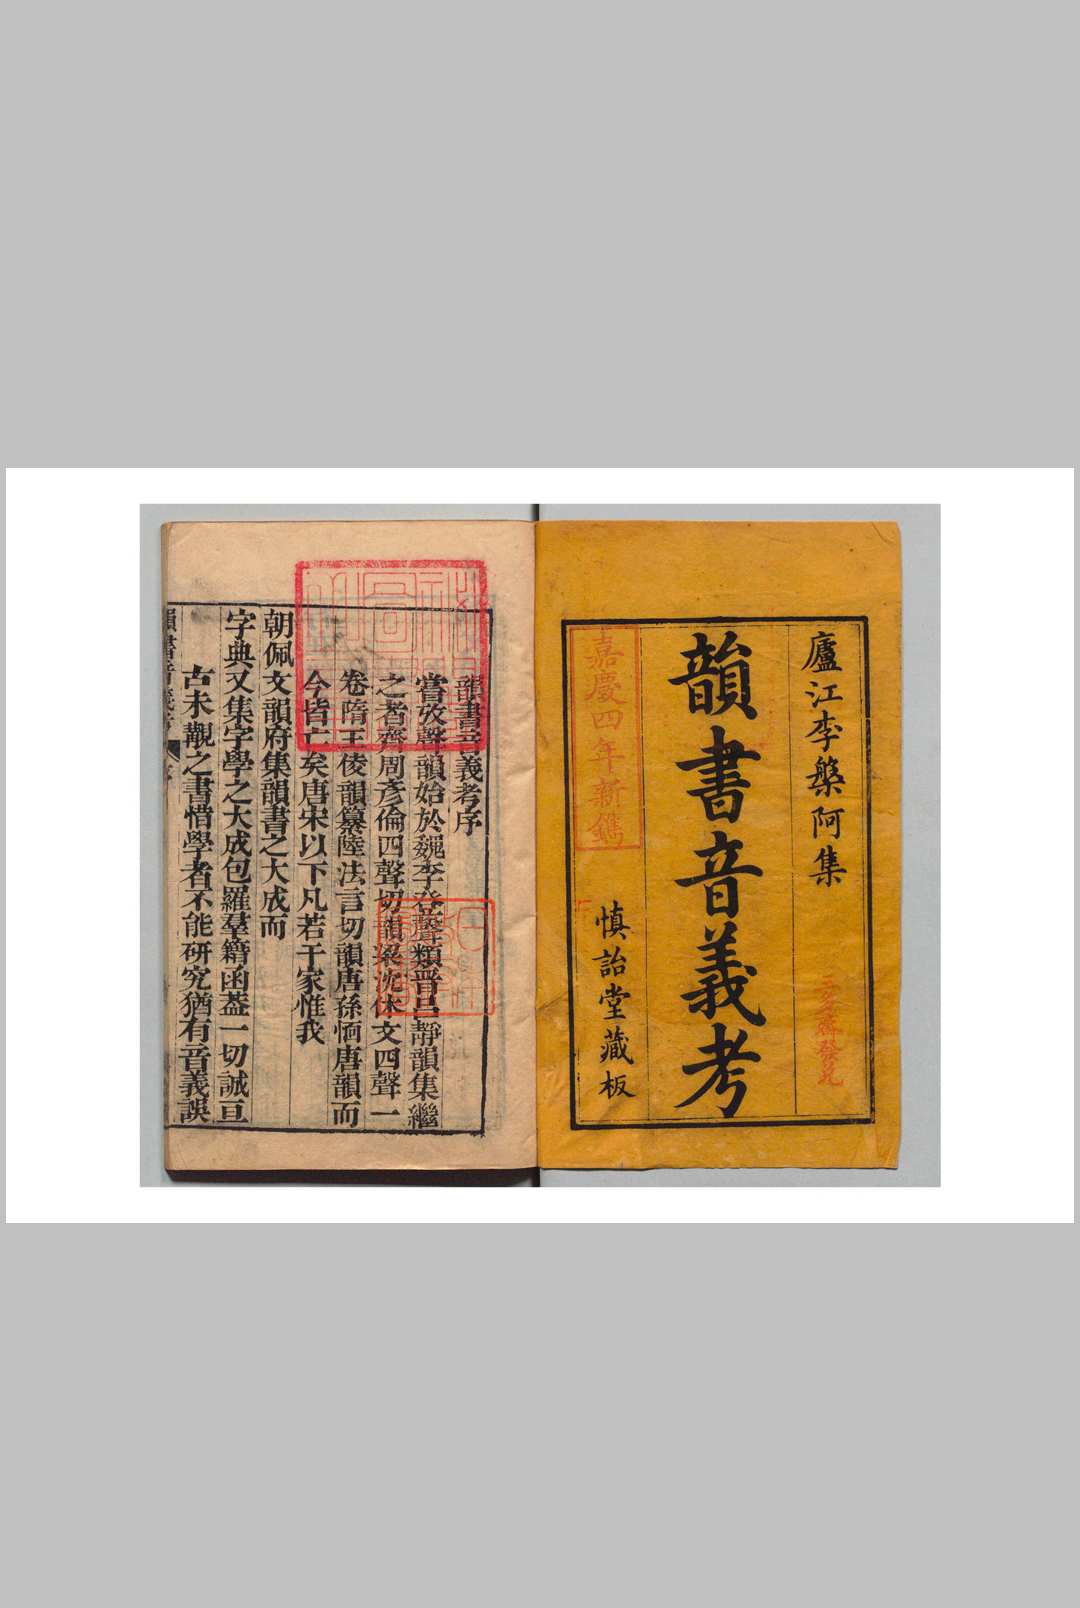 廬江李槃阿集
韻書音義考
嘉慶四年新鐫
慎詒堂藏板
發兌
韻書音義考序
嘗攷聲韻始於魏李登聲類晉呂靜韻集繼
之者齊周彥倫四聲切韻梁沈休文四聲一
卷隋王俊韻纂陸法言切韻唐孫愐唐韻而
今皆亡矣唐宋以下凡若干家惟我
朝佩文韻府集韻書之大成而
字典又集字學之大成包羅羣籍函葢一切誠亘
古未觀之書惜學者不能研究猶有音義誤
韻書音義考